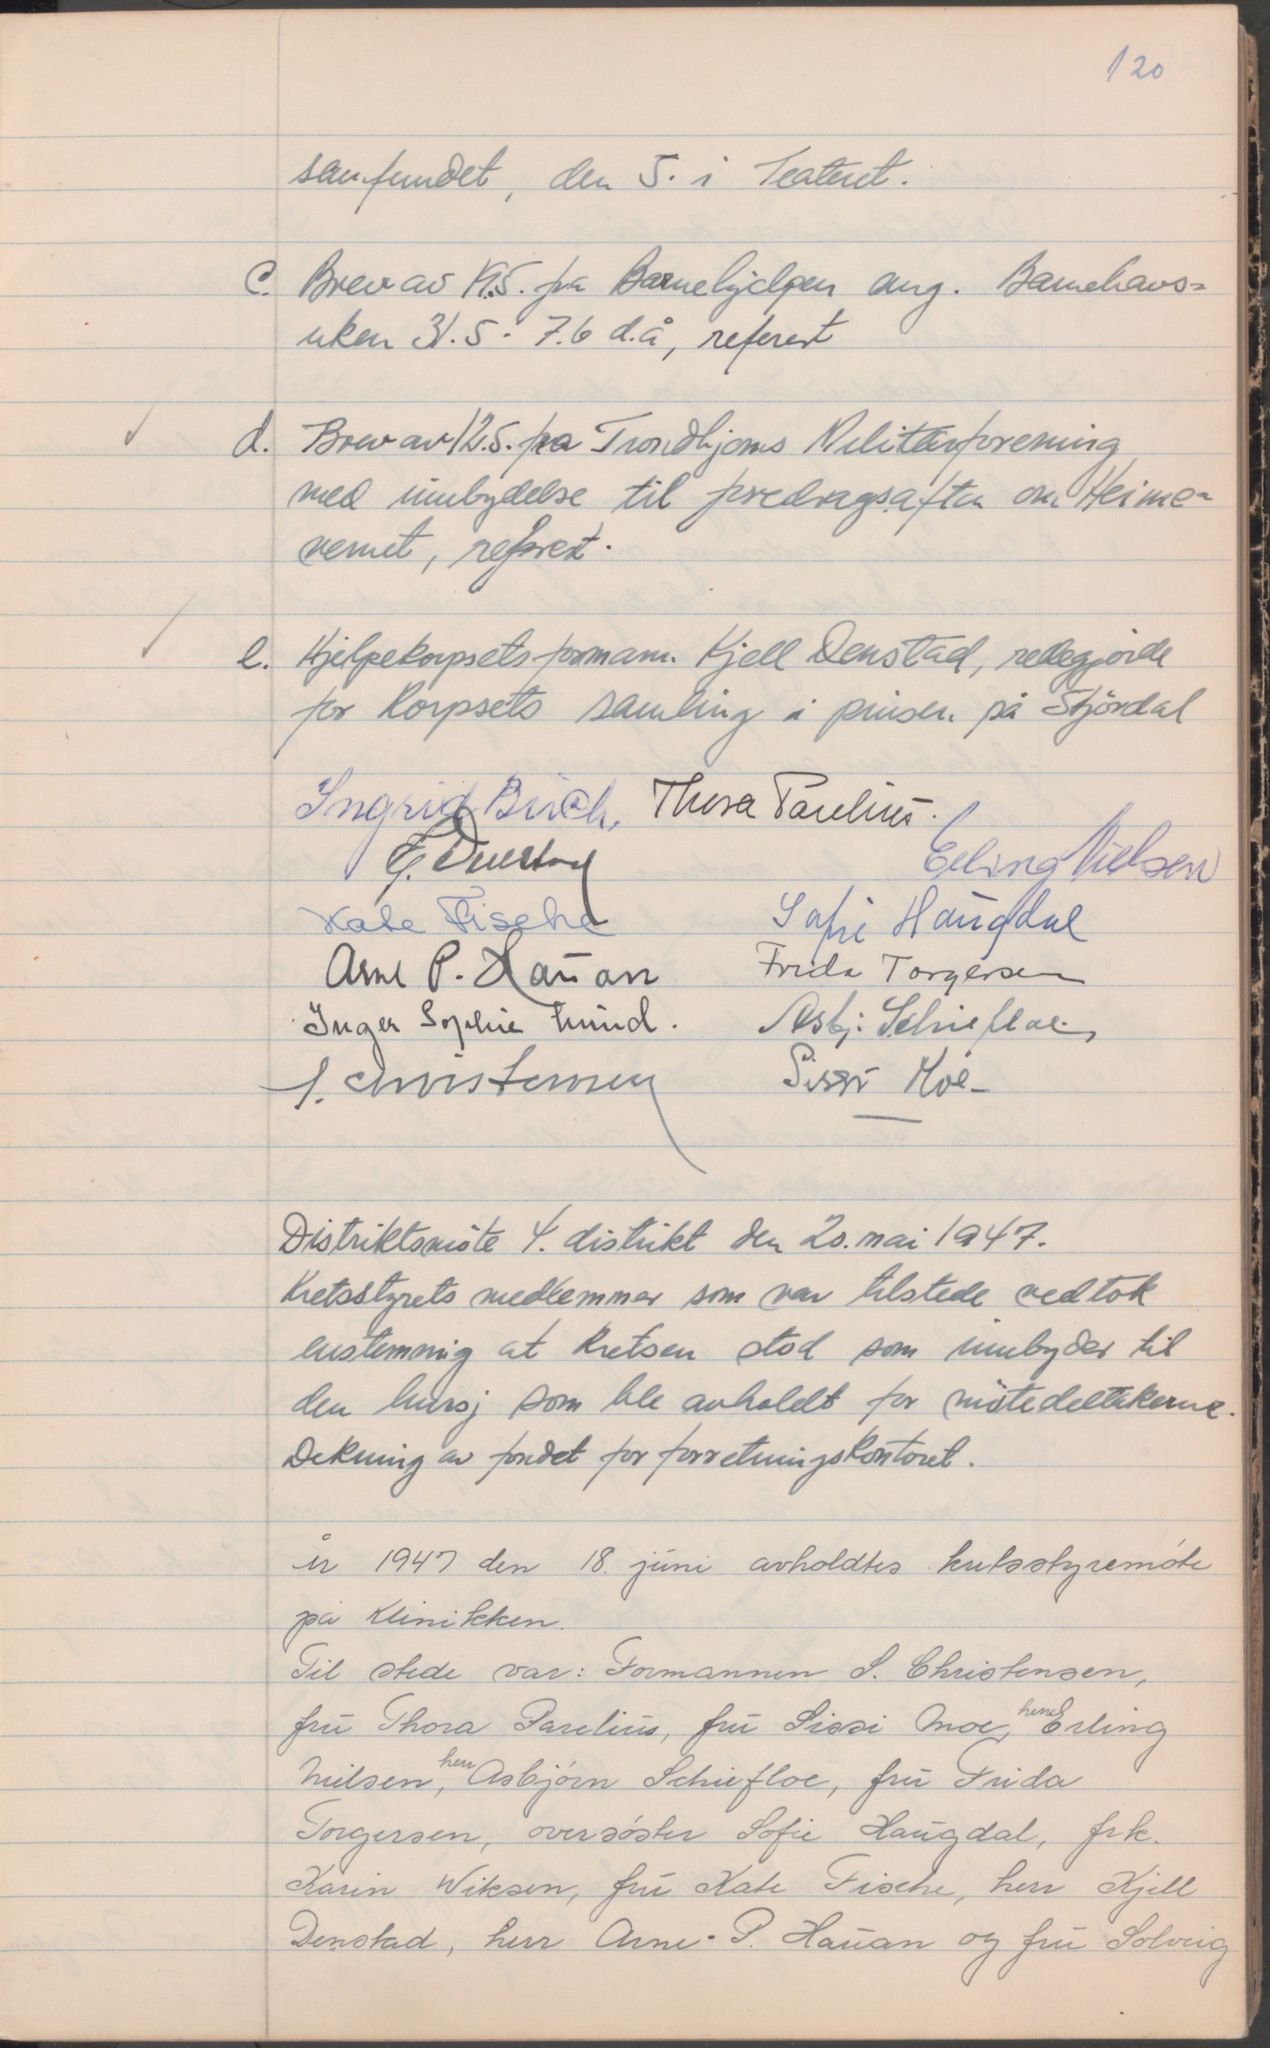 120
samfundet, den 5. i Teateret.
c. Brev av 19.5. fra Barnehjelpen ang. Barnehavs=
uken 31.5 - 7.6 d.å, referert
d. Brev av 12.5. fra Trondhjems Militærforening
med innbydelse til foredragsaften om Heime-
vernet, referert.
e. Hjelpekorpsets formann. Kjell Denstad, redegjorde
for Korpsets samling i pinsen på Stjördal
Ingrid Birch, Thora Parelius.
Denstad Erling Nielsen
Kate Fische Sofie Haugdal
Arne P. Hauan Frida Torgersen
Inger Sophie Lund. Asbj. Schiefloe,
S. Christensen Sissi Moe
Distriktsmöte 4. distrikt den 20. mai 1947.
Kretsstyrets medlemmer som var tilstede vedtok
enstemmig at Kretsen stod som innbyder til
den lunsj som ble avholdt for mötedeltakerne.
Dekning av fondet for forretningskontoret.
År 1947 den 18. juni avholdtes kretsstyremöte
på Klinikken.
Til stede var: Formannen S. Christensen,
fru Thora Parelius, fru Sissi Moe, herr Erling
Nilsen, herr Asbjörn Schiefloe, fru Frida
Torgersen, oversöster Sofie Haugdal, frk.
Karin Wiksen, fru Kate Fische, herr Kjell
Denstad, herr Arne P. Hauan og fru Solveig